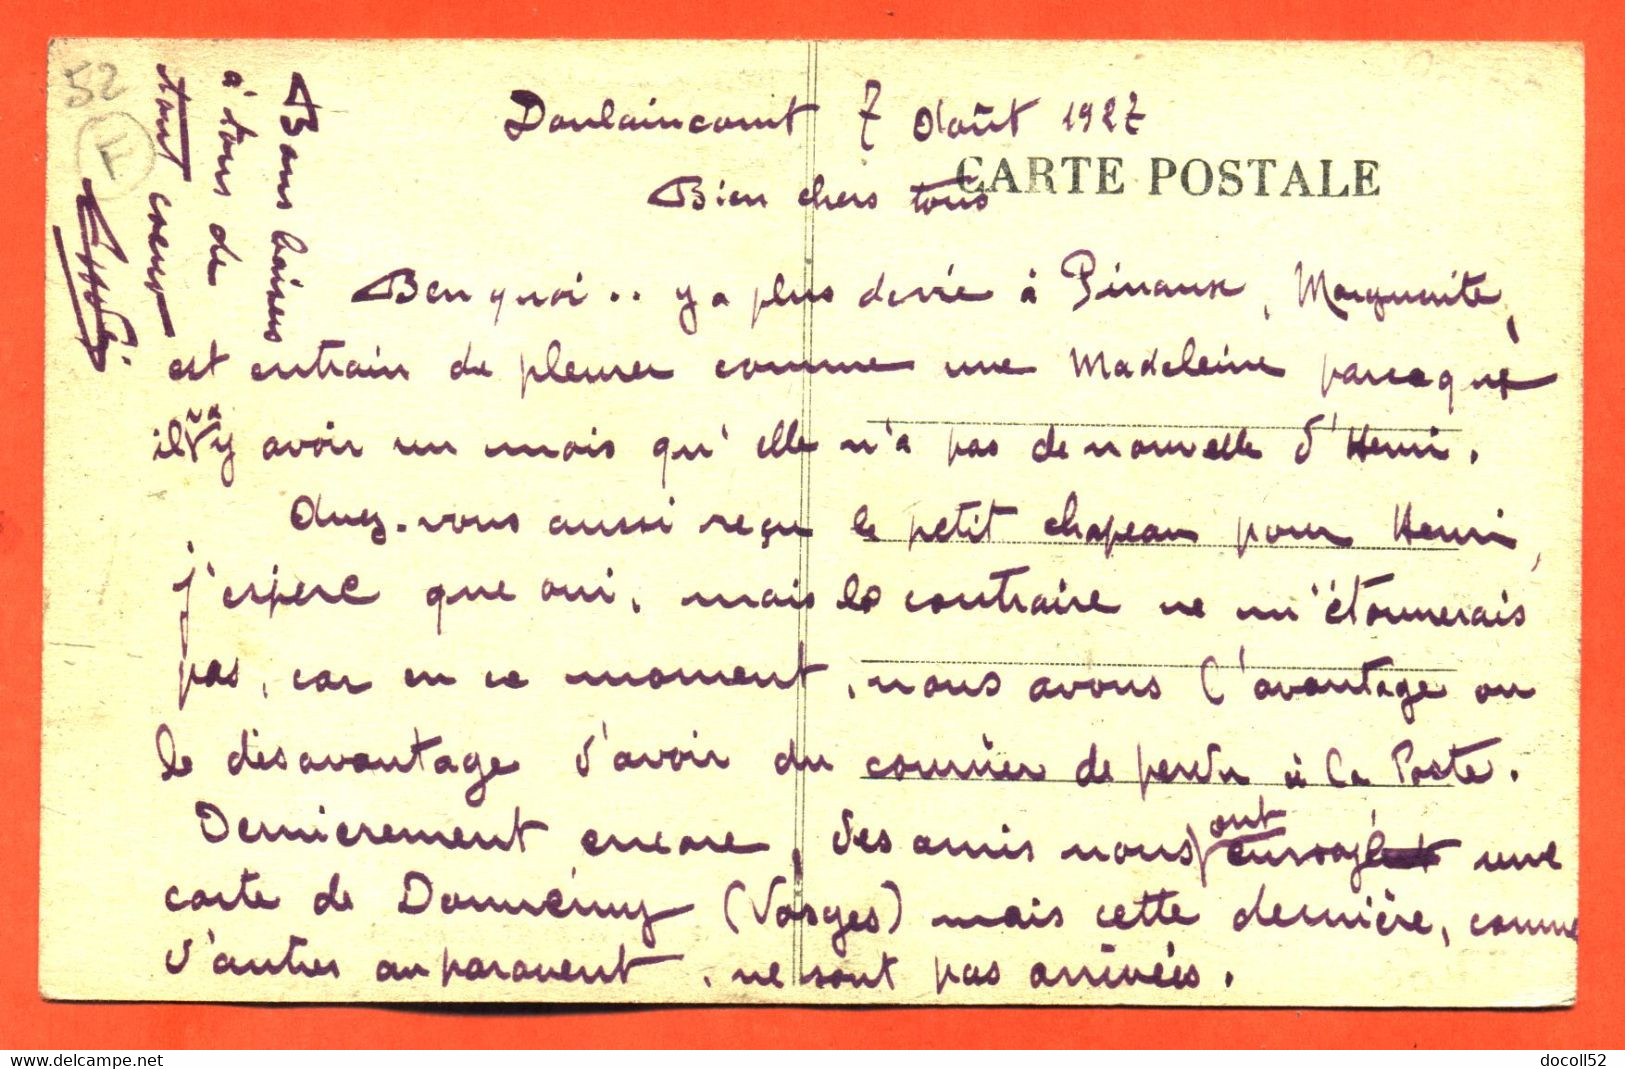 Doulaincourt 7 Août 1927
CARTE POSTALE
Bien chers tous
Ben quoi.. y a plus de vie à Pinaux, Marguerite,
est entrain de pleurer comme une Madeleine parceque
il va y avoir un mois qu'elle n'a pas de nouvelle d'Henri.
Avez-vous aussi reçu le petit chapeau pour Henri,
j'espere que oui, mais le contraire ne m'étonnerais
pas, car en ce moment, nous avons l'avantage ou
le désavantage d'avoir du courrier de perdu à la Poste.
Dernierement encore, des amis nous ont envoyé une
carte de Domrémy (Vosges) mais cette dernière, comme
d'autres auparavent, ne sont pas arrivées.
Bons baisers
à tous de
tout coeur
52
F
delcampe.net
docoll52